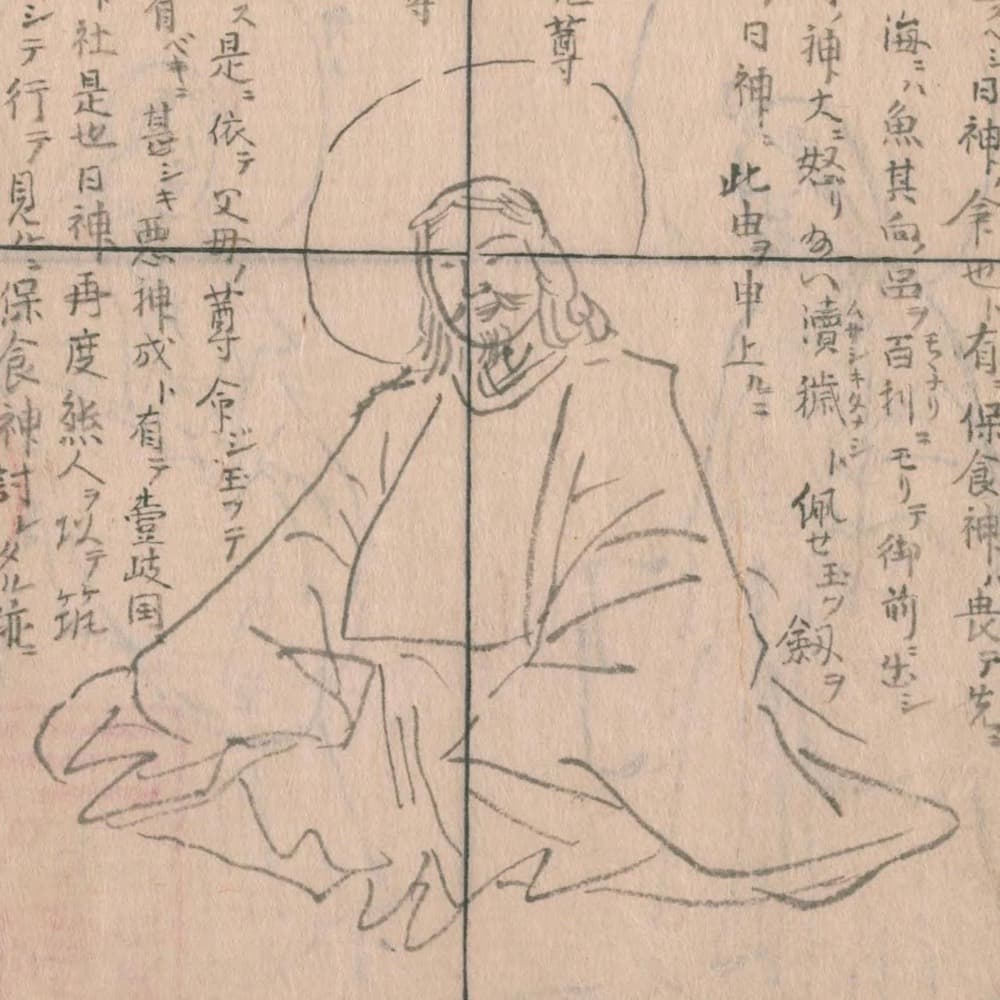 クベシ日神ノ命也ト有ニ保食神ノ畏テ先ニ
海ニハ魚其向ノ邑ヲ百判ニモリテ御前ニ出シ
モナリ
ノ神大ニ怒リ玉い瀆穢ト佩せ玉ヅ釼ヲ
ムサシキタナシ
日神ニ此由ヲ申上ルニ
尊
ス是ニ依テ父母ノ尊命ジ玉ヅテ
有ベキニ甚シキ悪神成ト有テ壹岐国
社是也日神再度熊人ヲ以テ筑
シテ行テ見ルニ保食神討レタル跡ニ